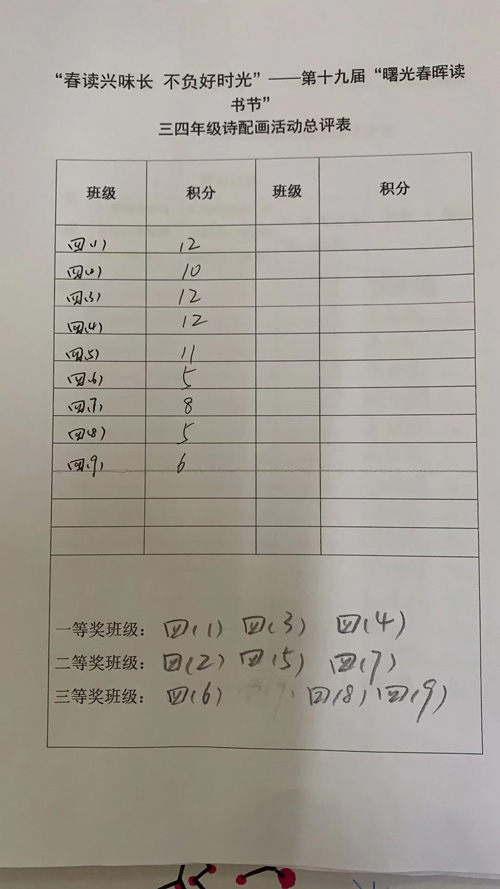 “春读兴味长 不负好时光”——第十九届“曙光春晖读
书节”
三四年级诗配画活动总评表
班级 积分 班级 积分
四(1) 12
四(2) 10
四(3) 12
四(4) 12
四(5) 11
四(6) 5
四(7) 8
四(8) 5
四(9) 6
一等奖班级：四(1) 四(3) 四(4)
二等奖班级：四(2) 四(5) 四(7)
三等奖班级：四(6) 四(8) 四(9)